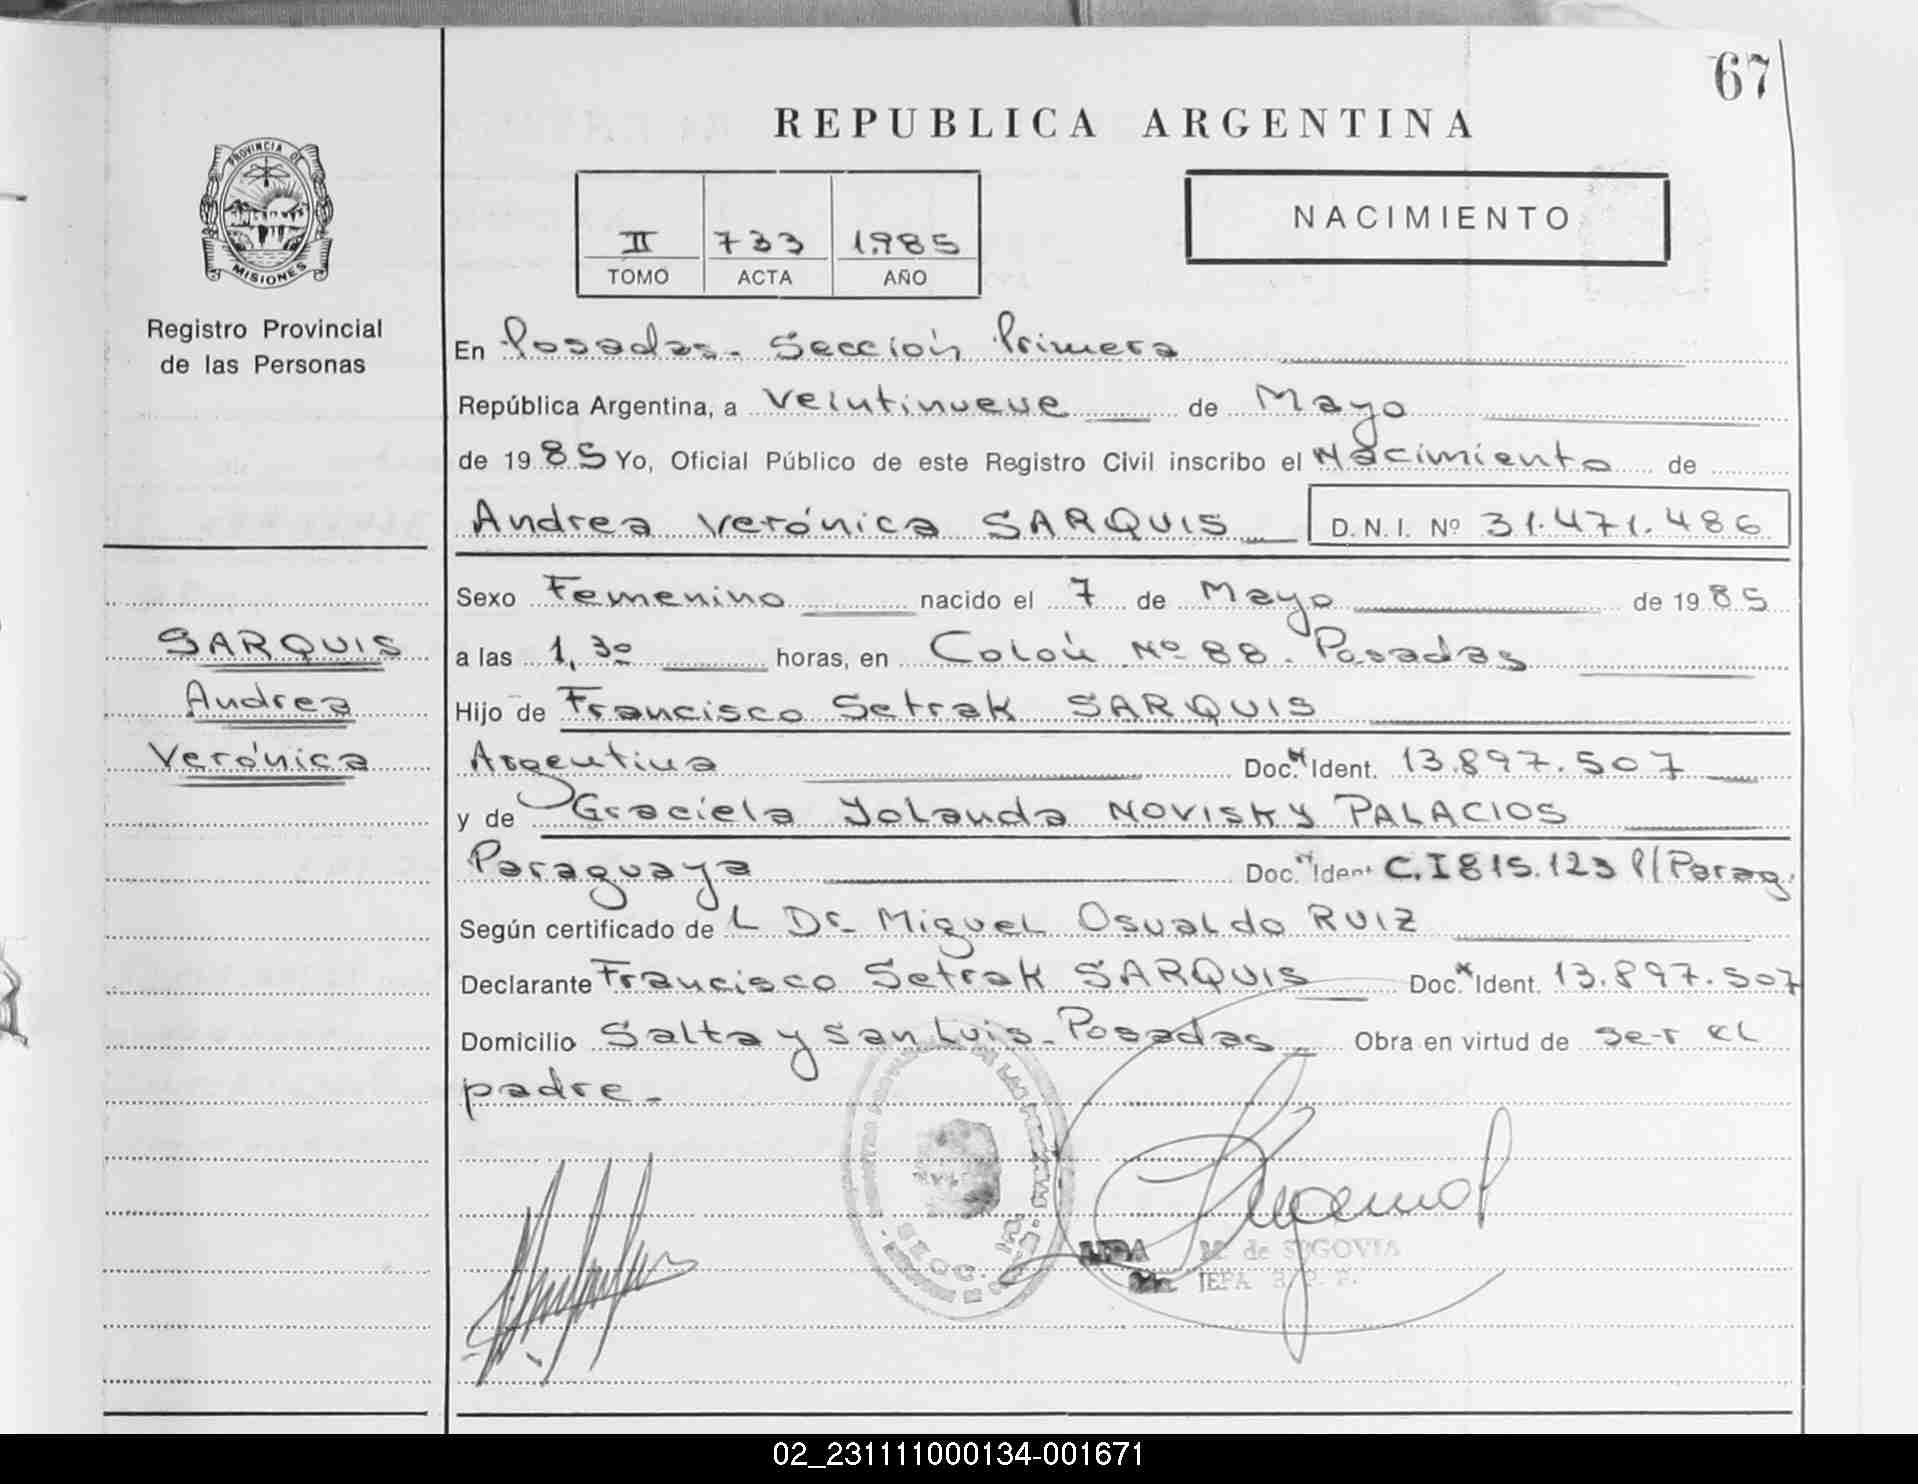 67
REPUBLICA ARGENTINA
PROVINCIA DE
MISIONES
Registro Provincial
de las Personas
II 733 1.985
TOMO ACTA AÑO
NACIMIENTO
En Posadas. Sección Primera
República Argentina, a Veintinueve de Mayo
de 1985 Yo, Oficial Público de este Registro Civil inscribo el Nacimiento de
Andrea Verónica SARQUIS D.N.I. Nº 31.471.486
Sexo Femenino nacido el 7 de Mayo de 1985
SARQUIS
Andrea
Verónica
a las 1,30 horas, en Colón Nº 88. Posadas
Hijo de Francisco Setrak SARQUIS
Argentina Doc. Ident. 13.897.507
y de Graciela Yolanda NOVISKY PALACIOS
Paraguaya Doc. Ident C.I 815.123 P/Parag.
Según certificado de L Dr. Miguel Osvaldo RUIZ
Declarante Francisco Setrak SARQUIS Doc. Ident. 13.897.507
Domicilio Salta y San Luis. Posadas Obra en virtud de ser el
padre.
M. de SEGOVIA
JEFA
02_231111000134-001671